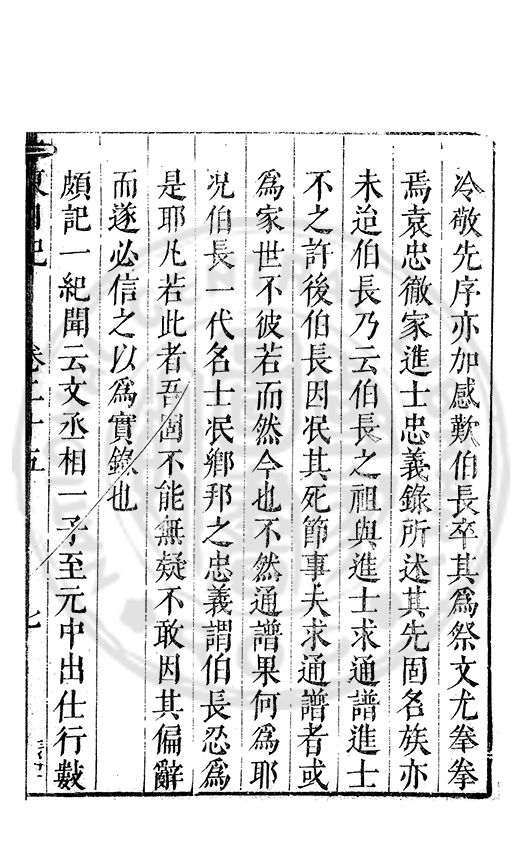 冷敬先序亦加感歎伯長卒其爲祭文尤拳拳
焉袁忠徹家進士忠義錄所述其先固名族亦
未迨伯長乃云伯長之祖與進士求通譜進士
不之許後伯長因泯其死節事夫求通譜者或
爲家世不彼若而然今也不然通譜果何爲耶
况伯長一代名士泯鄉邦之忠義謂伯長忍爲
是耶凡若此者吾固不能無疑不敢因其偏辭
而遂必信之以爲實錄也
頗記一紀聞云文丞相一子至元中出仕行數
卷二十五
七